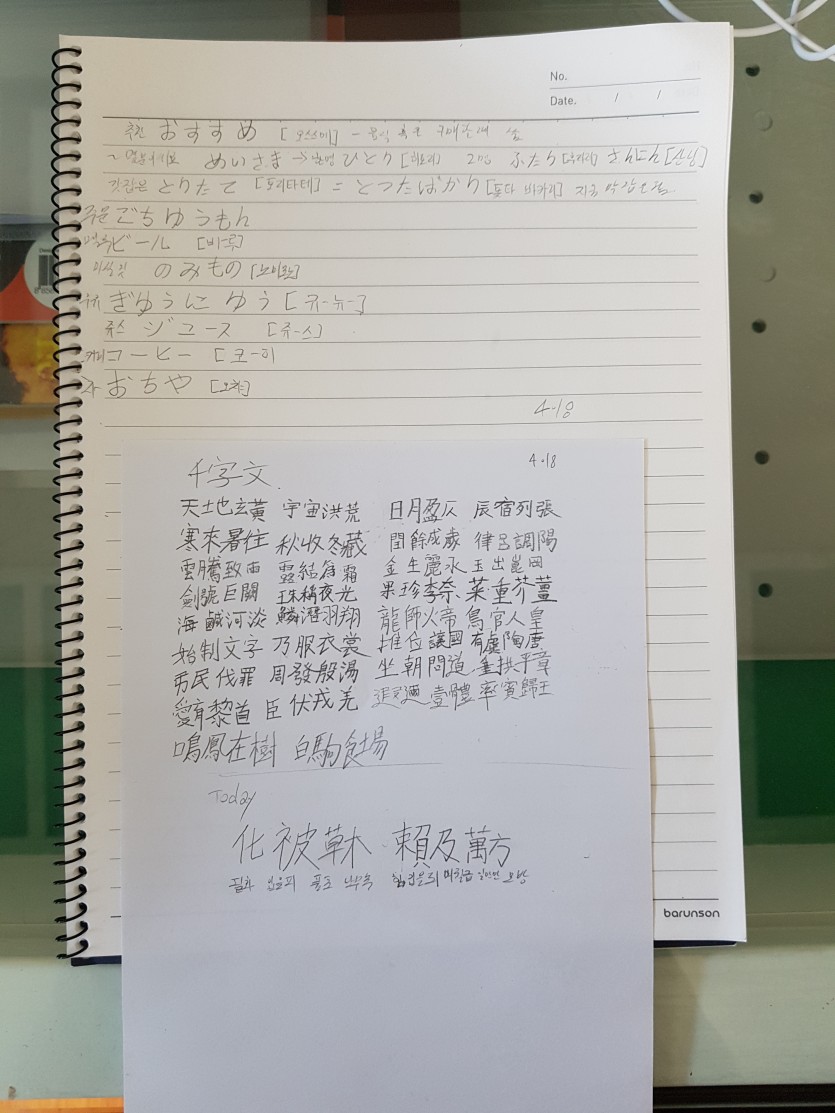 No.
Date. / /
추천 おすすめ [오스스메] - 음식 혹은
めいさま → 한명 ひとり [히토리] 2명 ふたり [후타리] さんにん [산닝]
갓잡은 とりたて [토리타테] = とったばかり [톳타 바카리] 지금 막 잡은
주문 ごちゆうもん
맥주 ビール [비-루]
마실 것 のみもの [노미모노]
우유 ぎゆうにゆう [규-뉴-]
쥬스 ジユース [쥬-스]
커피 コーヒー [코-히]
차 おちや [오챠]
4.18
千字文
4.18
天土地玄黃 宇宙洪荒 日月盈仄 辰宿列張
寒來暑往 秋收冬藏 閏餘成歲 律呂調陽
雲騰致雨 露結為霜 金生麗水 玉出崑岡
劍號巨闕 珠稱夜光 果珍李奈 菜重芥薑
海鹹河淡 鱗潛羽翔 龍師火帝 鳥官人皇
始制文字 乃服衣裳 推位讓國 有虞陶唐
弔民伐罪 周發殷湯 坐朝問道 垂拱平章
愛育黎首 臣伏戎羌 遐邇壹體 率賓歸王
鳴鳳在樹 白駒食場
Today
化被草木 賴及萬方
될화 입을피 풀초 나무목 힘입을뢰 미칠급 일만만 모방
barunson